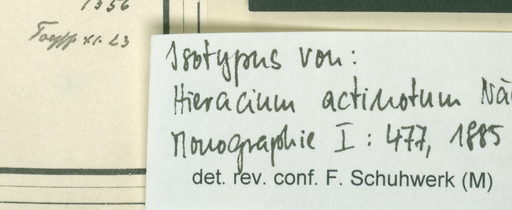 1356
xi. 23
Isotypus von:
Hieracium actinotum Nä
Monographie I: 477, 1885
det. rev. conf. F. Schuhwerk (M)